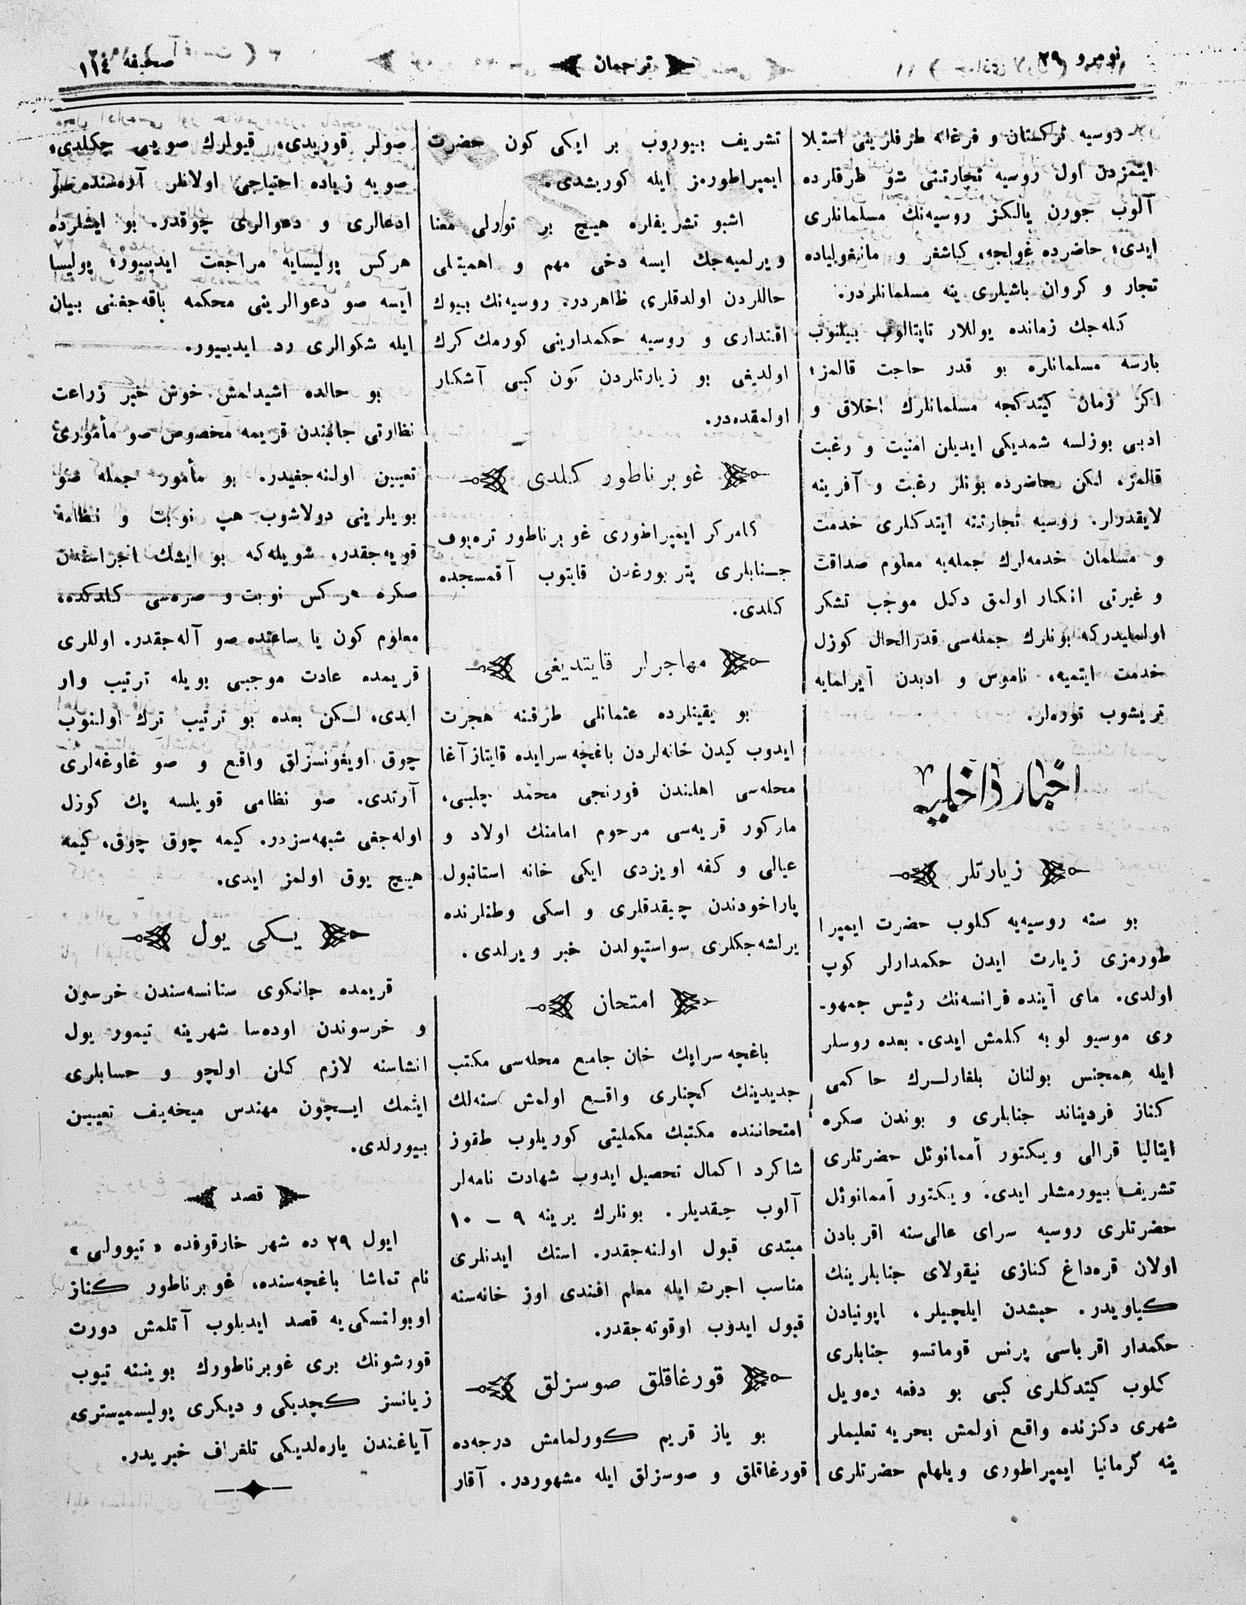 نومرو ٢٩
ترجمان
صحيفه ١١٤
روسيه تركستان و فرغانه طرفلرينى استيلا
ايتمزدن اول روسيه تجارتنى شو طرفلرده
آلوب جورن يالكز روسيه‌نك مسلمانلرى
ايدى؛ حاضرده غولجه، كاشغر و مانغولياده
تجار و كروان باشيلرى ينه مسلمانلردر.
كله‌جك زمانده يوللار تاپتالوب بيلنوب
بارسه مسلمانلره بو قدر حاجت قالمز؛
اكر زمان كيتدكجه مسلمانلرك اخلاق و
ادبى بوزلسه شمديكى ايديلن امنيت و رغبت
قالمز. لكن حاضرده بونلر رغبت و آفرينه
لايقدرلر. روسيه تجارتنه ايتدكلرى خدمت
و مسلمان خدمه‌لرك جمله‌يه معلوم صداقت
و غيرتى انكار اولمق دكل موجب تشكر
اولمليدركه بونلرك جمله‌سى قدرالحال كوزل
خدمت ايتميه، ناموس و ادبدن آيرلمايه
تريشوب توره‌لر.
اخبار داخليه
زيارتلر
بو سنه روسيه‌يه كلوب حضرت ايمپرا
طورمزى زيارت ايدن حكمدارلر كوپ
اولدى. ماى آينده فرانسه‌نك رئيس جمهو-
رى موسيو لوبه كلمش ايدى. بعده روسلر
ايله همجنس بولنان بلغارلرك حاكمى
كناز فرديناند جنابلرى و بوندن صكره
ايتاليا قرالى ويكتور آممانوئل حضرتلرى
تشريف بيورمشلر ايدى. ويكتور آممانوئل
حضرتلرى روسيه سراى عالى‌سنه اقربادن
اولان قره‌داغ كنازى نيقولاى جنابلرينك
كياويدر. حبشدن ايلچيلر، اپونيادن
حكمدار اقرباسى پرنس قوماتسو جنابلرى
كلوب كيتدكلرى كبى بو دفعه ره‌ويل
شهرى دكزنده واقع اولمش بحريه تعليملر
ينه گرمانيا ايمپراطورى ويلهام حضرتلرى
تشريف بيوروب بر ايكى كون حضرت
ايمپراطورمز ايله كوريشدى.
اشبو تشريفلره هيچ بر تورلى معنا
ويرلميه‌جك ايسه دخى مهم و اهميتلى
حاللردن اولدقلرى ظاهردر. روسيه‌نك بيوك
اقتدارى و روسيه حكمدارينى كورمك كرك
اولديغى بو زيارتلردن كون كبى آشكار
اولمقده‌در.
غوبرناطور كلدى
كامركر ايمپراطورى غوبرناطور تره‌پوف
جنابلرى پتربورغدن قايتوب آقمسجده
كلدى.
مهاجرلر قايتديغى
بو يقينلرده عثمانلى طرفنه هجرت
ايدوب كيدن خانه‌لردن باغچه‌سرايده قايتازآغا
محله‌سى اهلندن فورنجى محمد چلبى،
ماركور قريه‌سى مرحوم امامنك اولاد و
عيالى و كفه اويزدى ايكى خانه استانبول
پاراخودندن چيقدقلرى و اسكى وطنلرنده
يرلشه‌جكلرى سواستپولدن خبر ويرلدى.
امتحان
باغچه‌سرايك خان جامع محله‌سى مكتب
جديدينك كچنارى واقع اولمش سنه‌لك
امتحاننده مكتبك مكمليتى كوريلوب طقوز
شاكرد اكمال تحصيل ايدوب شهادت نامه‌لر
آلوب چيقديلر. بونلرك يرينه ٩ – ١٠
مبتدى قبول اولنه‌جقدر. استك ايدنلرى
مناسب اجرت ايله معلم افندى اوز خانه‌سنه
قبول ايدوب اوقوته‌جقدر.
قورغاقلق صوسزلق
بو ياز قريم كورلمامش درجه‌ده
قورغاقلق و صوسزلق ايله مشهوردر. آقار
صولر قوريدى، قيولرك صويى چكلدى،
صويه زياده احتياجى اولانلر آره‌سنده صو
ادعالرى و دعوالرى چوقدر. بو ايشلرده
هركس پوليسايه مراجعت ايديور؛ پوليسا
ايسه صو دعوالرينى محكمه باقه‌جغنى بيان
ايله شكوالرى رد ايديور.
بو حالده اشيدلمش خوش خبر زراعت
نظارتى جانبندن قريمه مخصوص صو مأمورى
تعيين اولنه‌جغيدر. بو مأمور جمله صو
بويلرينى دولاشوب هپ نوبت و نظامه
قويه‌جقدر، شويله‌كه بو ايشك اجراسندن
صكره هركس نوبت و صره‌سى كلدكده،
معلوم كون يا ساعتده صو آله‌جقدر. اوللرى
قريمده عادت موجبى بويله ترتيب وار
ايدى، لكن بعده بو ترتيب ترك اولنوب
چوق اويغونسزلق واقع و صو غاوغه‌لرى
آرتدى. صو نظامى قويلسه پك كوزل
اوله‌جغى شبهه‌سزدر. كيمه چوق چوق، كيمه
هيچ يوق اولمز ايدى.
يكى يول
قريمده جانكوى ستانسه‌سندن خرسون
و خرسوندن اوده‌سا شهرينه تيمور يول
انشاسنه لازم كلن اولچو و حسابلرى
ايتمك ايچون مهندس ميخه‌يف تعيين
بيورلدى.
قصد
ايول ٢٩ ده شهر خارقوفده «تيوولى»
نام تماشا باغچه‌سنده، غوبرناطور كناز
اوبولنسكى‌يه قصد ايديلوب آتلمش دورت
قورشونك برى غوبرناطورك بويننه تيوب
زيانسز كچديكى و ديكرى پوليسميسترى
آياغندن ياره‌لديكى تلغراف خبريدر.